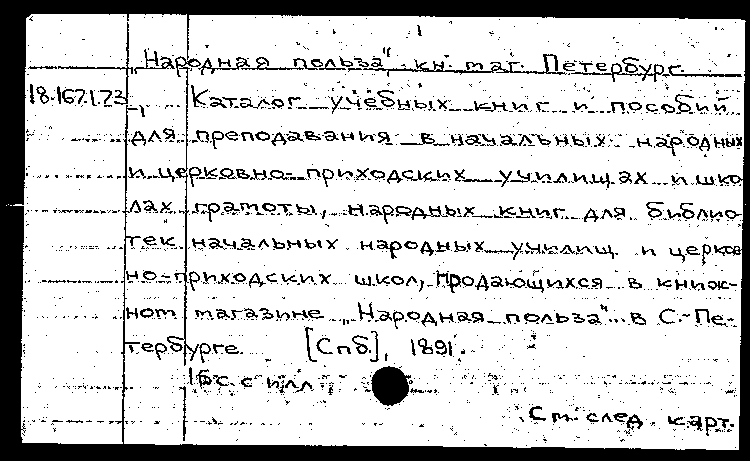 „Народная польза", кн. маг. Петербург.
18.167.1.73 -„ Каталог учебных книг и пособий
для преподавания в начальных народных
и церковно-приходских училищах и шко
лах грамоты, народных книг для библио
тек начальных народных училищ и церков
но-приходских школ, продающихся в книж-
ном магазине „Народная польза" в С.-Пе-
тербурге. [Спб], 1891.
16с. с илл.
См. след. карт.